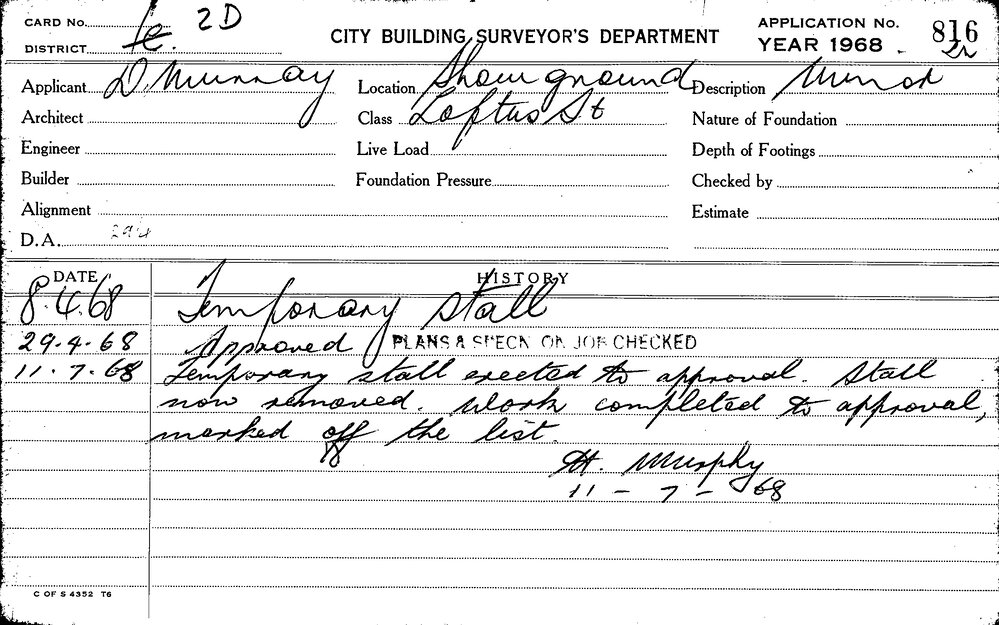 CARD No. 2D
DISTRICT
CITY BUILDING SURVEYOR'S DEPARTMENT
APPLICATION No. 816
YEAR 1968
Applicant D. Murray
Location Showground
Description Minor
Architect
Class Loftus St
Nature of Foundation
Engineer
Live Load
Depth of Footings
Builder
Foundation Pressure
Checked by
Alignment
Estimate
D.A.
DATE HISTORY
8.4.68 Temporary stall
29.4.68 Approved PLANS & SPECN ON JOB CHECKED
11.7.68 Temporary stall erected to approval. Stall
now removed. Work completed to approval,
marked off the list.
H. Murphy
11-7-68
C OF S 4352 T6